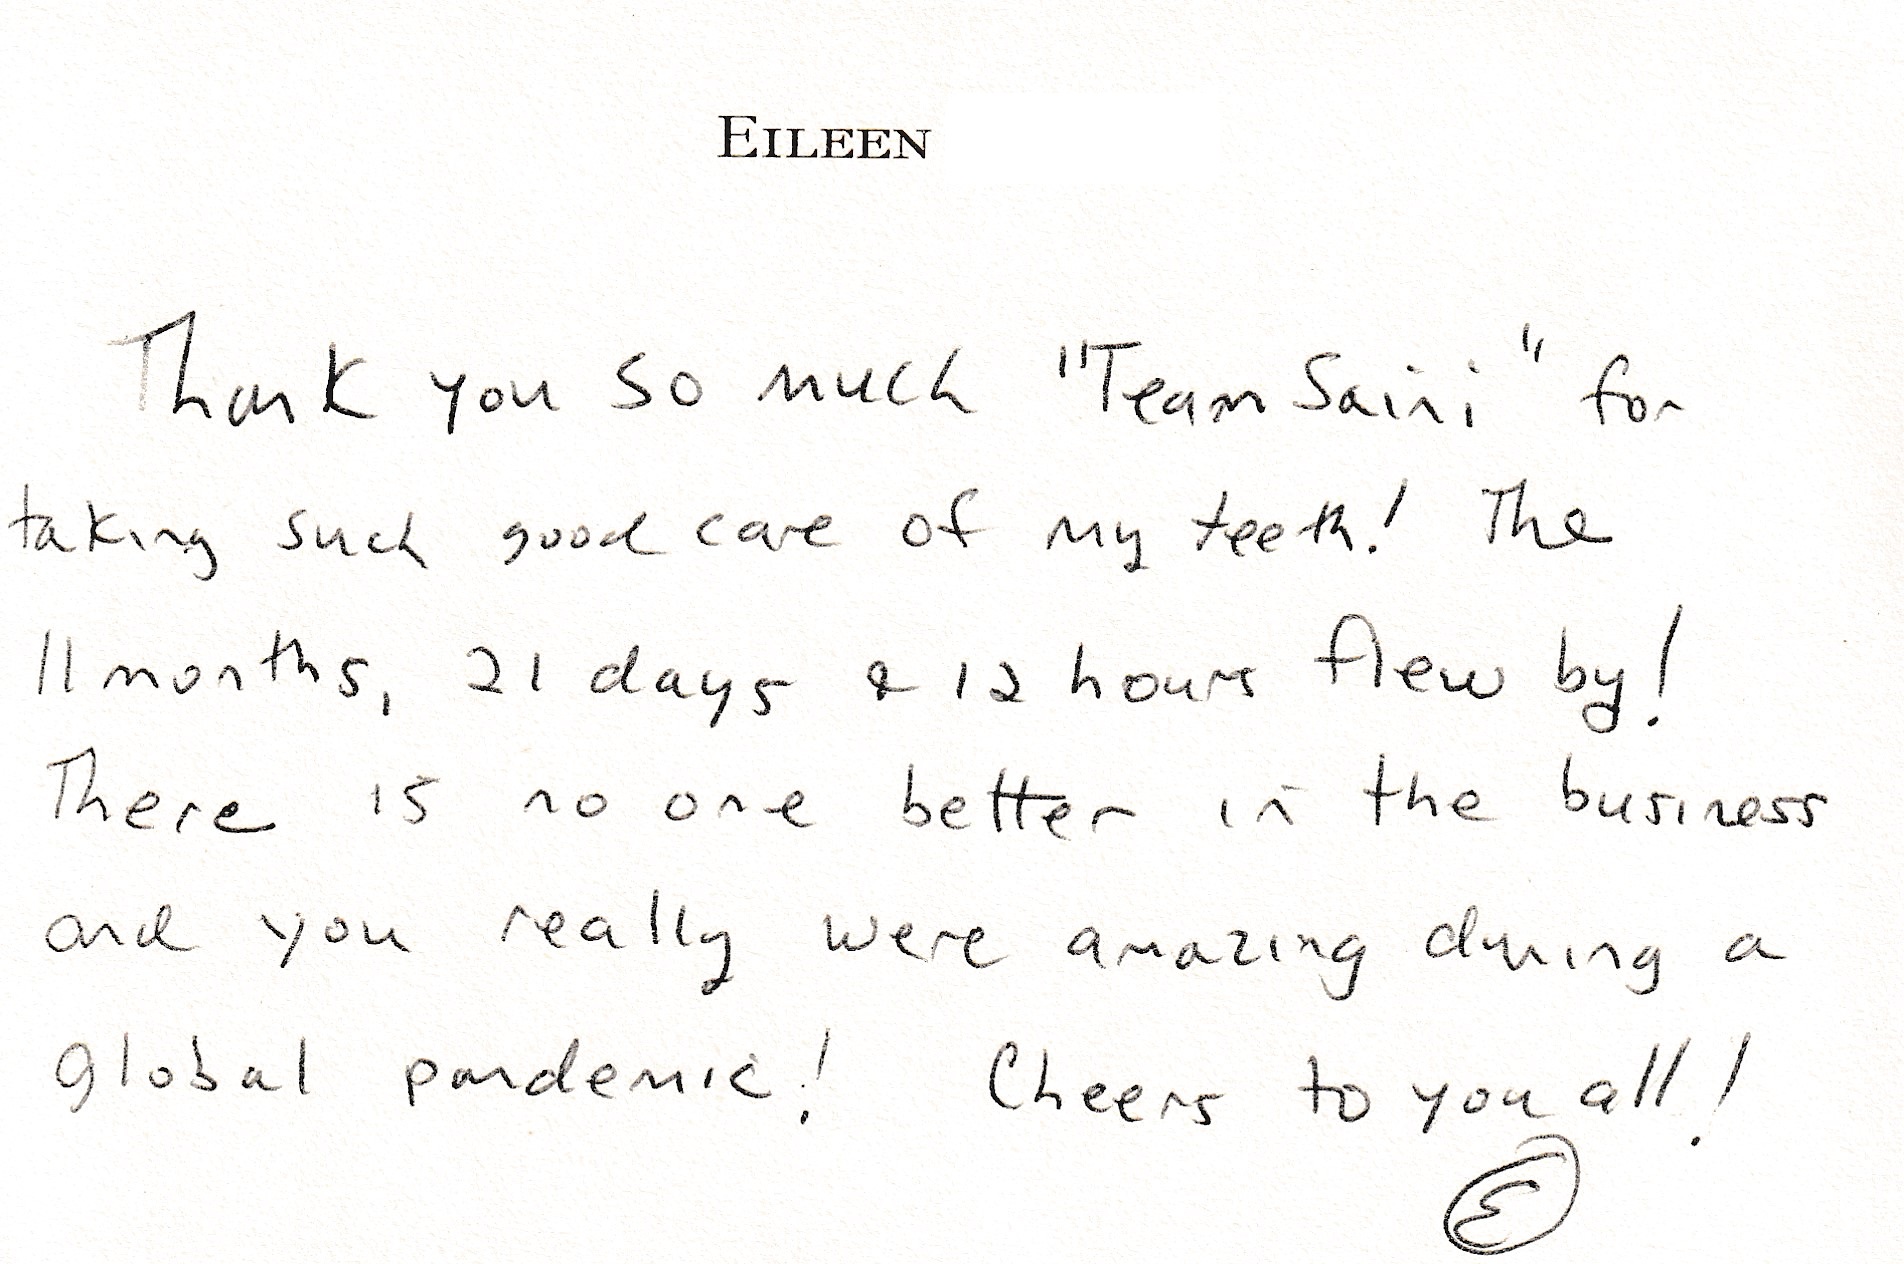 EILEEN
Thank you so much "Team Saini" for
taking such good care of my teeth! The
11 months, 21 days & 12 hours flew by!
There is no one better in the business
and you really were amazing during a
global pandemic! Cheers to you all!
E